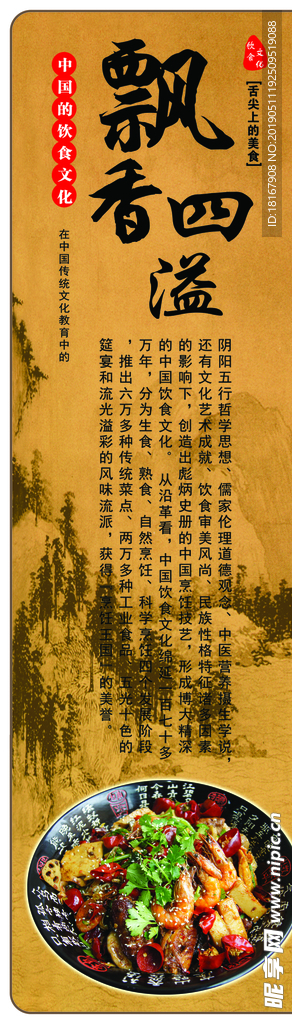 飘香
四溢
饮食
文化
[舌尖上的美食]
中国的饮食文化
在中国传统文化教育中的
阴阳五行哲学思想、儒家伦理道德观念、中医营养摄生学说，
还有文化艺术成就、饮食审美风尚、民族性格特征诸多因素
的影响下，创造出彪炳史册的中国烹饪技艺，形成博大精深
的中国饮食文化。从沿革看，中国饮食文化绵延一百七十多
万年，分为生食、熟食、自然烹饪、科学烹饪四个发展阶段
，推出六万多种传统菜点、两万多种工业食品、五光十色的
筵宴和流光溢彩的风味流派，获得"烹饪王国"的美誉。
ID:18167908 NO:20190511192509519088
昵享网 www.nipic.cn